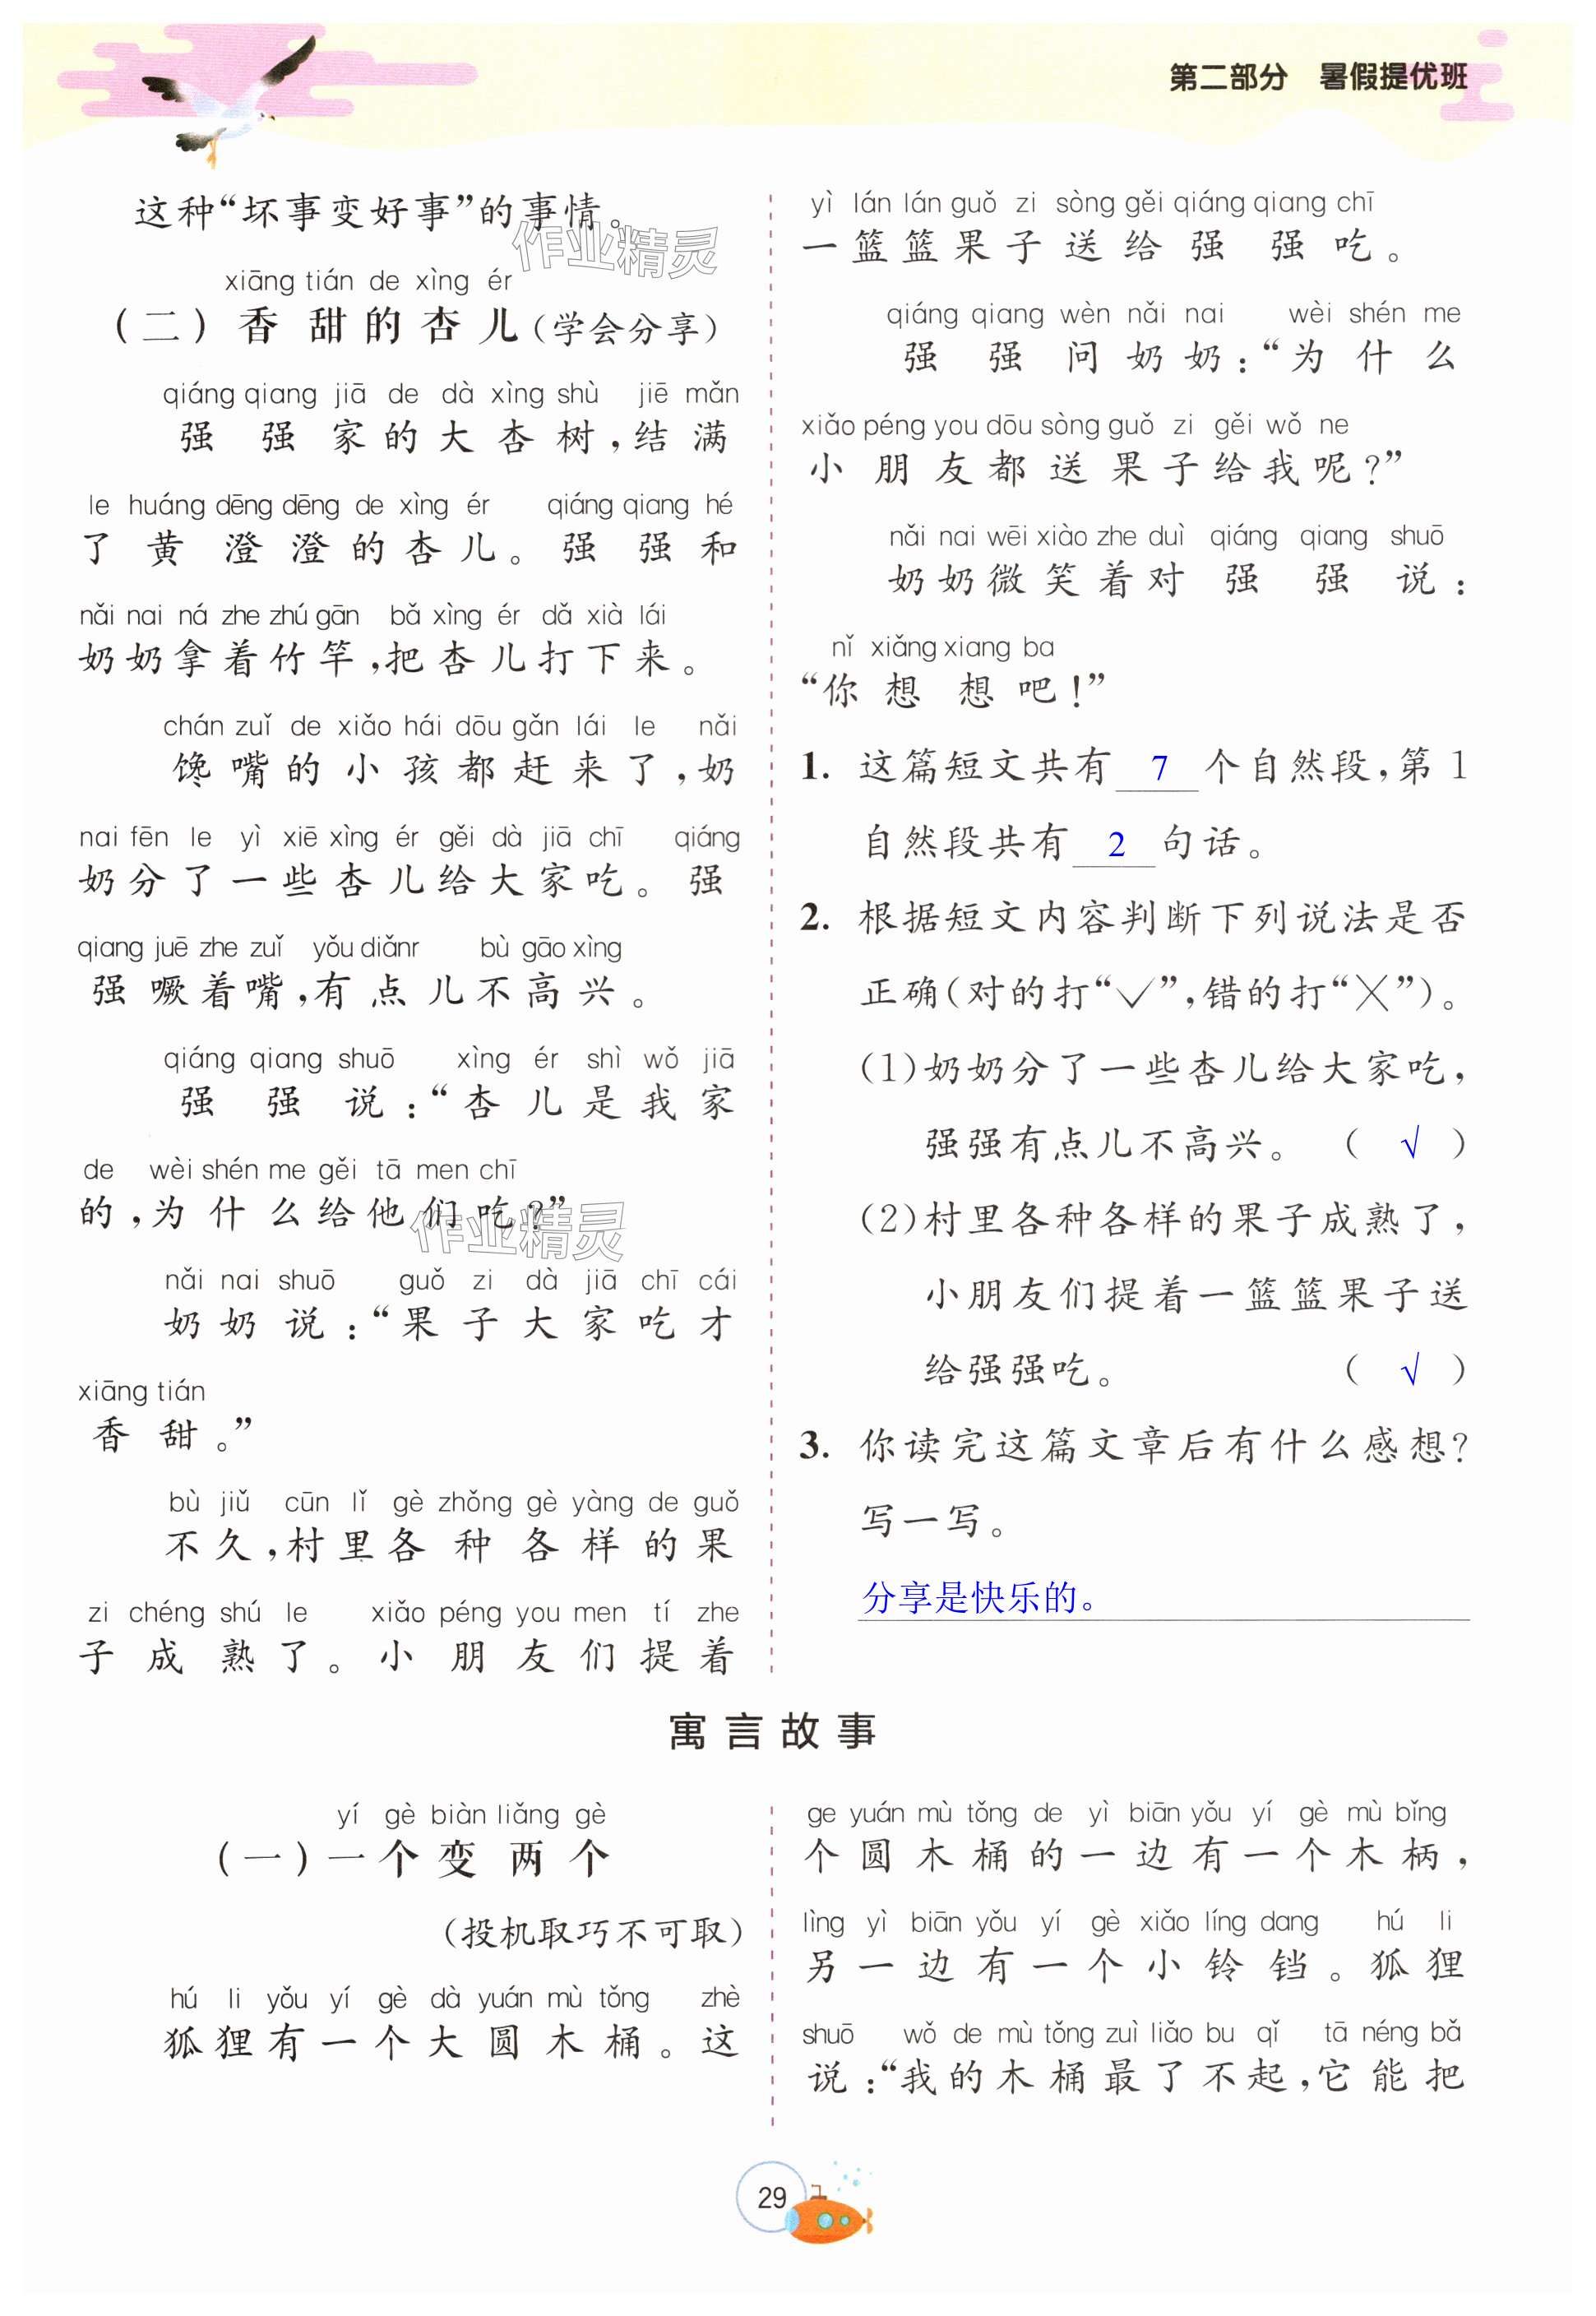 第二部分 暑假提优班
这种“坏事变好事”的事情。
作业精灵
xiāng tián de xìng ér
（二）香甜的杏儿（学会分享）
qiáng qiang jiā de dà xìng shù jiē mǎn
强强家的大杏树，结满
le huáng dēng dēng de xìng ér qiáng qiang hé
了黄澄澄的杏儿。强强和
nǎi nai ná zhe zhú gān bǎ xìng ér dǎ xià lái
奶奶拿着竹竿，把杏儿打下来。
chán zuǐ de xiǎo hái dōu gǎn lái le nǎi
馋嘴的小孩都赶来了，奶
nai fēn le yì xiē xìng ér gěi dà jiā chī qiáng
奶分了一些杏儿给大家吃。强
qiang juē zhe zuǐ yǒu diǎnr bù gāo xìng
强噘着嘴，有点儿不高兴。
qiáng qiang shuō xìng ér shì wǒ jiā
强强说：“杏儿是我家
de wèi shén me gěi tā men chī
的，为什么给他们吃？”
作业精灵
nǎi nai shuō guǒ zi dà jiā chī cái
奶奶说：“果子大家吃才
xiāng tián
香甜。”
bù jiǔ cūn lǐ gè zhǒng gè yàng de guǒ
不久，村里各种各样的果
zi chéng shú le xiǎo péng you men tí zhe
子成熟了。小朋友们提着
yì lán lán guǒ zi sòng gěi qiáng qiang chī
一篮篮果子送给强强吃。
qiáng qiang wèn nǎi nai wèi shén me
强强问奶奶：“为什么
xiǎo péng you dōu sòng guǒ zi gěi wǒ ne
小朋友都送果子给我呢？”
nǎi nai wēi xiào zhe duì qiáng qiang shuō
奶奶微笑着对强强说：
nǐ xiǎng xiang ba
“你想想吧！”
1. 这篇短文共有 7 个自然段，第1
自然段共有 2 句话。
2. 根据短文内容判断下列说法是否
正确（对的打“✓”，错的打“╳”）。
（1）奶奶分了一些杏儿给大家吃，
强强有点儿不高兴。（ √ ）
（2）村里各种各样的果子成熟了，
小朋友们提着一篮篮果子送
给强强吃。（ √ ）
3. 你读完这篇文章后有什么感想？
写一写。
分享是快乐的。
寓言故事
yí gè biàn liǎng gè
（一）一个变两个
（投机取巧不可取）
hú li yǒu yí gè dà yuán mù tǒng zhè
狐狸有一个大圆木桶。这
ge yuán mù tǒng de yì biān yǒu yí gè mù bǐng
个圆木桶的一边有一个木柄，
lìng yì biān yǒu yí gè xiǎo líng dang hú li
另一边有一个小铃铛。狐狸
shuō wǒ de mù tǒng zuì liǎo bu qǐ tā néng bǎ
说：“我的木桶最了不起，它能把
29